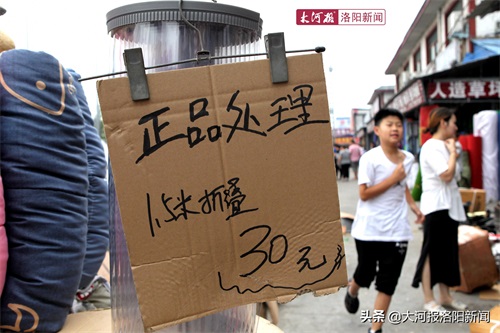 大河报 洛阳新闻
正品处理
1.5米折叠
30元
人造草坪
头条 @大河报洛阳新闻